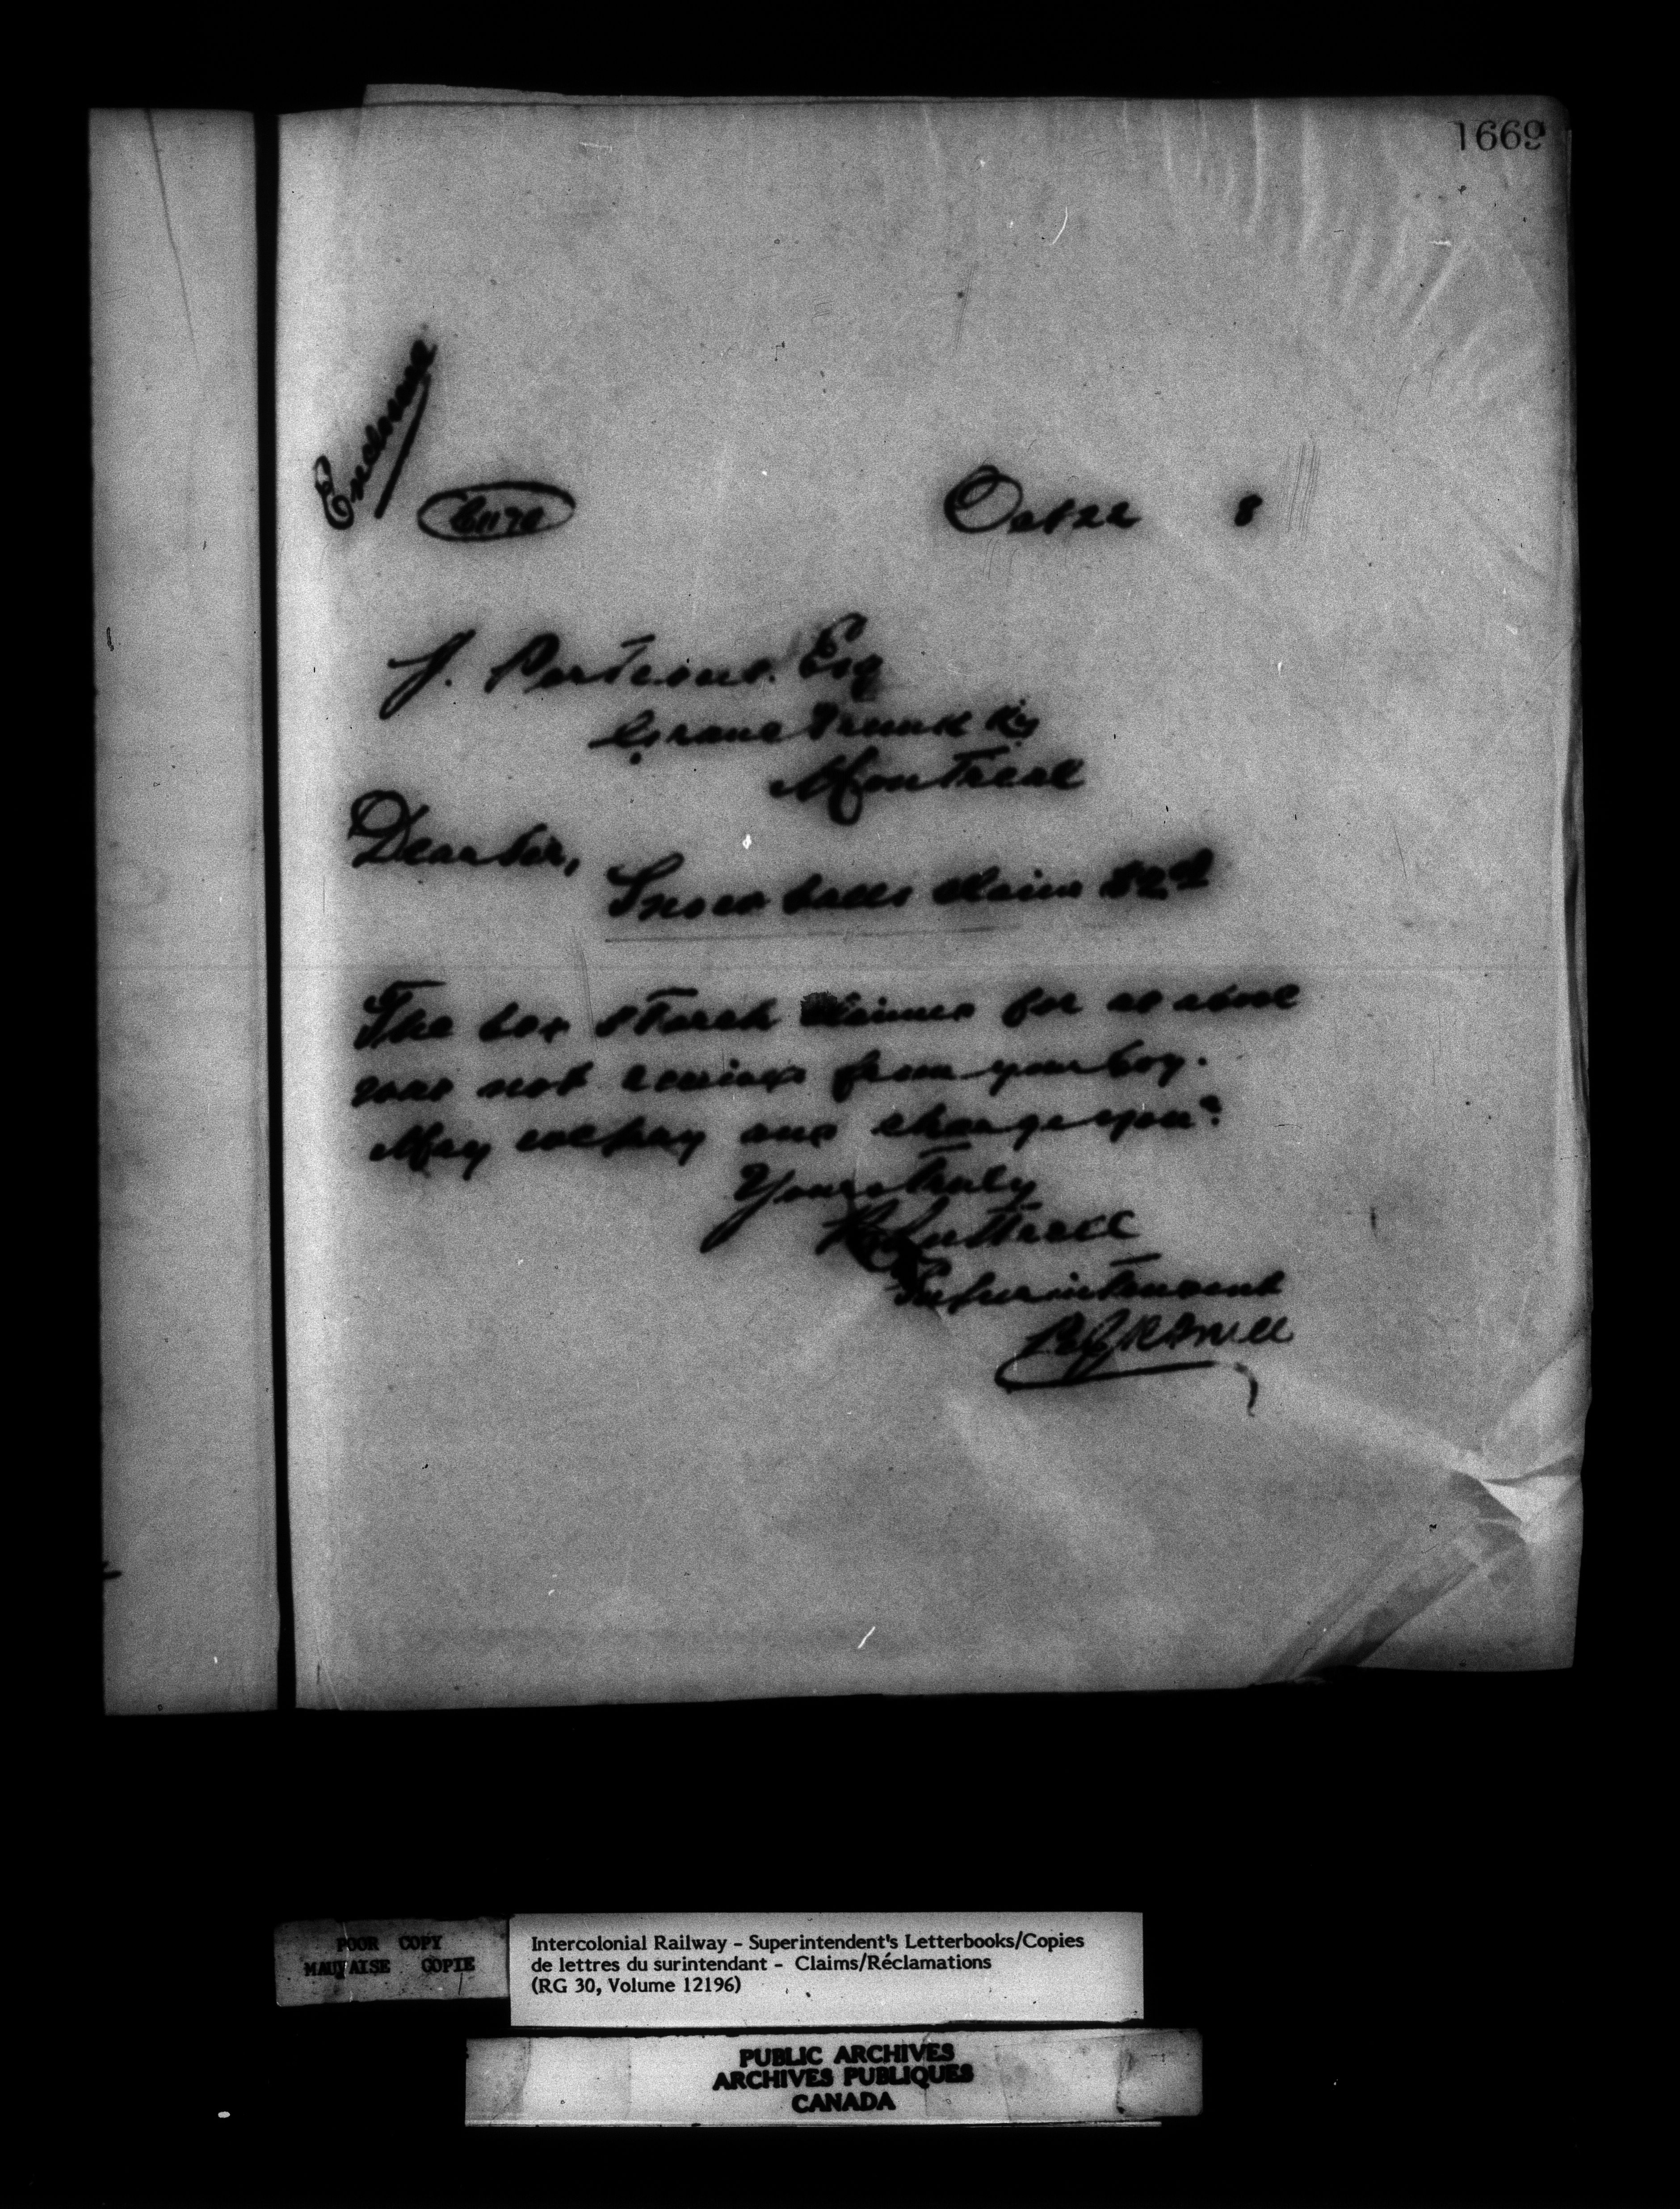 1669
Enclosure
Oct 22 8
J. Porteous. Esq
Grand Trunk Ry
Montreal
Dear Sir,
Snow balls claim
The box starch claimed for as above
was not received from your Coy.
May we pay and charge you?
Yours truly
Luttrell
Superintendent
POOR COPY
MAUVAISE COPIE
Intercolonial Railway - Superintendent's Letterbooks/Copies
de lettres du surintendant - Claims/Réclamations
(RG 30, Volume 12196)
PUBLIC ARCHIVES
ARCHIVES PUBLIQUES
CANADA